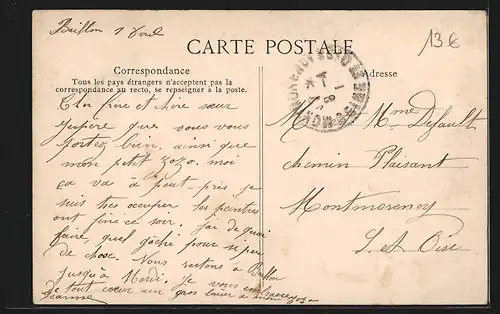 Baillon 1 Aout
13 €
CARTE POSTALE
Correspondance
Tous les pays étrangers n'acceptent pas la
correspondance au recto, se renseigner à la poste.
Adresse
Cher frère et chère sœur
j'espère que vous vous
portez bien, ainsi que
mon petit zozo. moi
ça va à peut-près je
suis très occuper les peintres
ont fini ce soir, j'ai de quoi
faire, quel gâchi pour si peu
de chose. Nous restons à Baillon
jusqu'à Mardi. Je vous embrasse
de tout cœur un gros baiser à mon zozo
Jeanne
M Mme Default
chemin Plaisant
Montmorency
S. et Oise